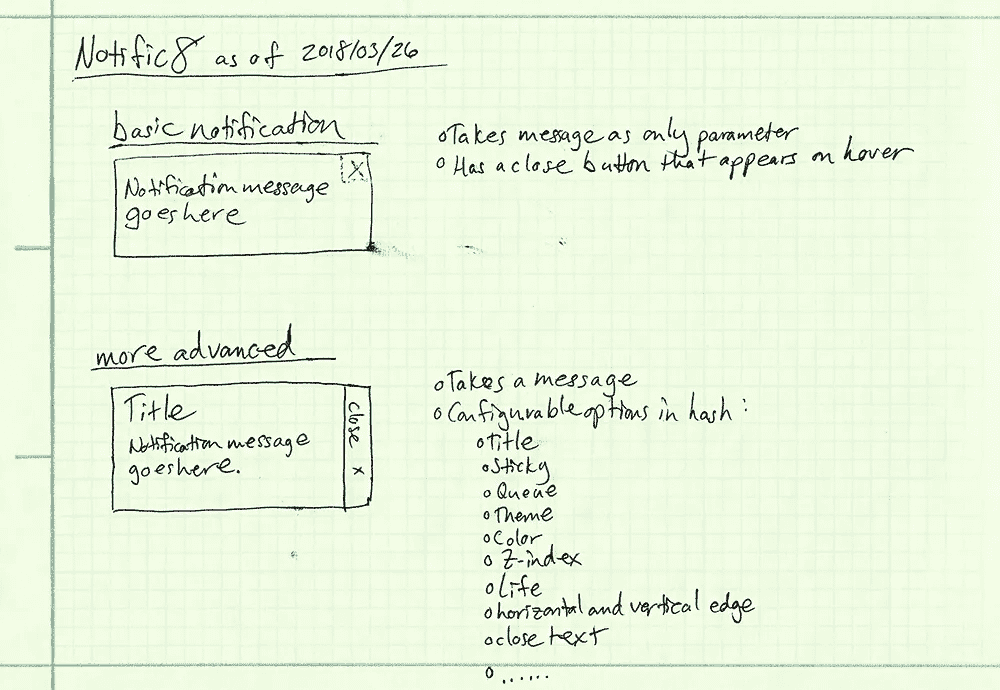 Notific8 as of 2018/03/26
basic notification
Notification message
goes here
X
o Takes message as only parameter
o Has a close button that appears on hover
more advanced
Title
Notification message
goes here.
close x
o Takes a message
o Configurable options in hash:
o Title
o Sticky
o Queue
o Theme
o Color
o Z-index
o Life
o horizontal and vertical edge
o close text
o ......